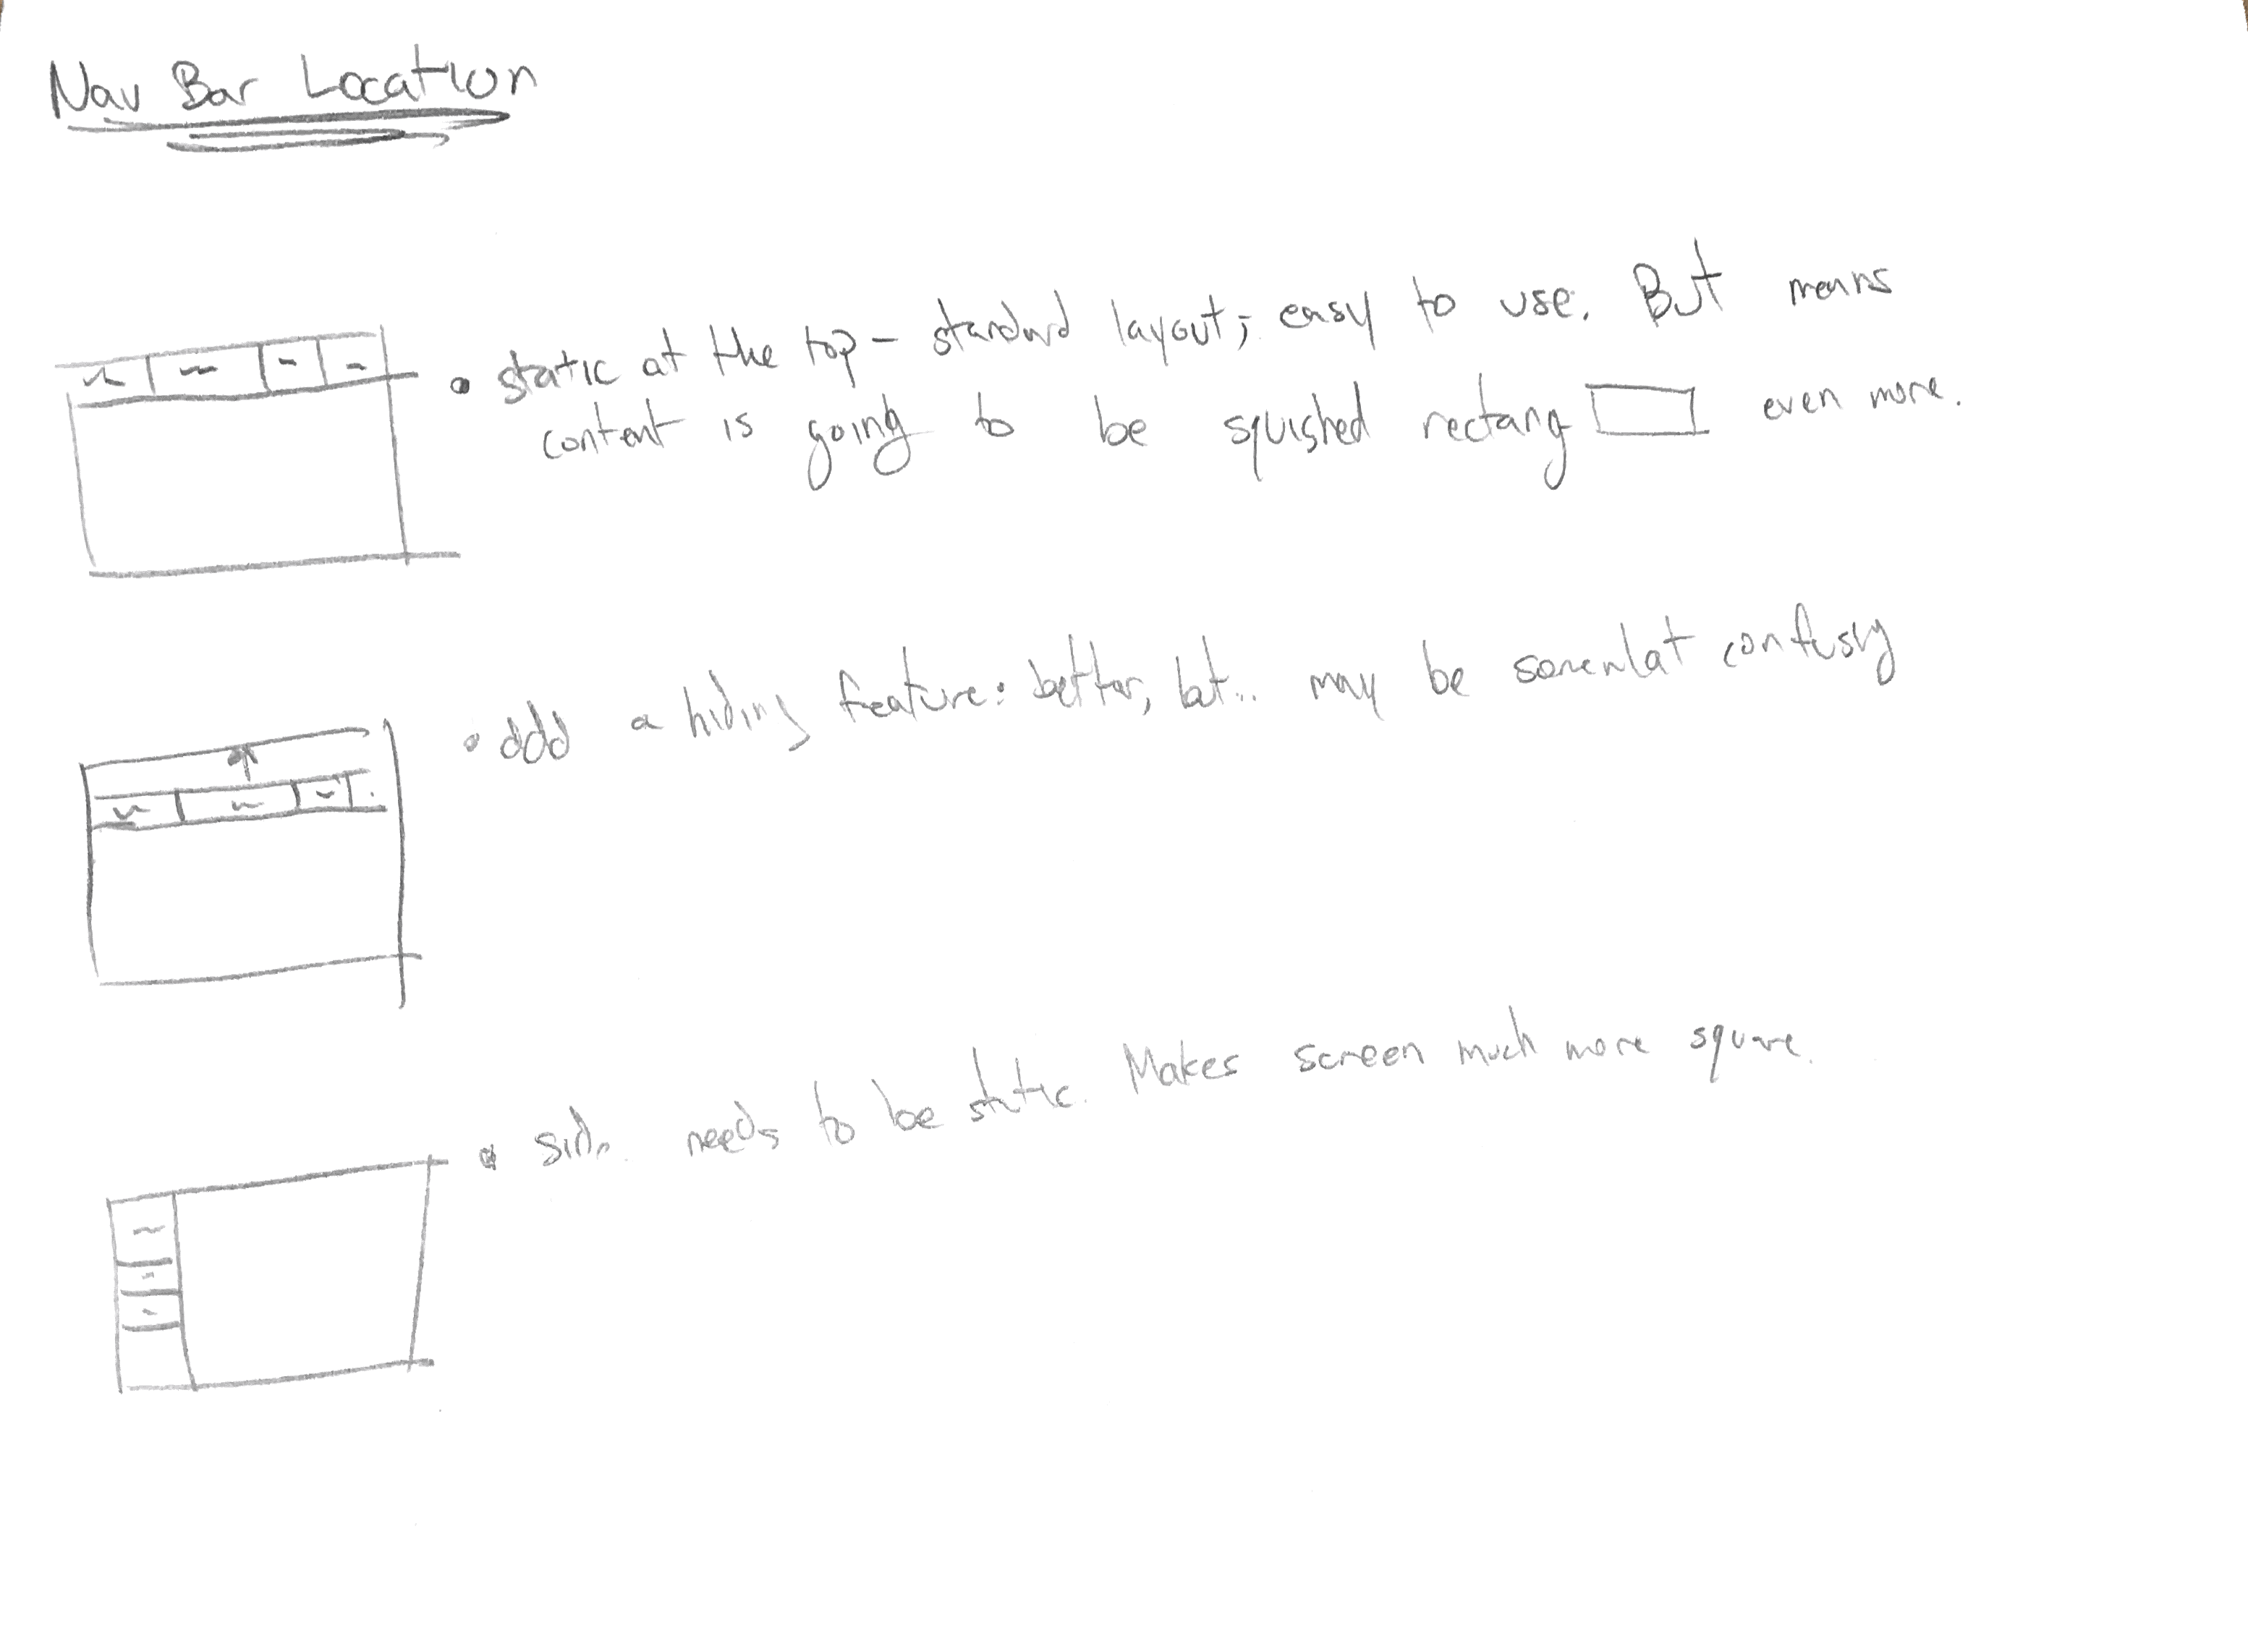 Nav Bar Location
• static at the top - standard layout; easy to use. But means
content is going to be squished rectang even more.
• add a hiding feature: better, but... may be somewhat confusing
• side. needs to be static. Makes screen much more square.